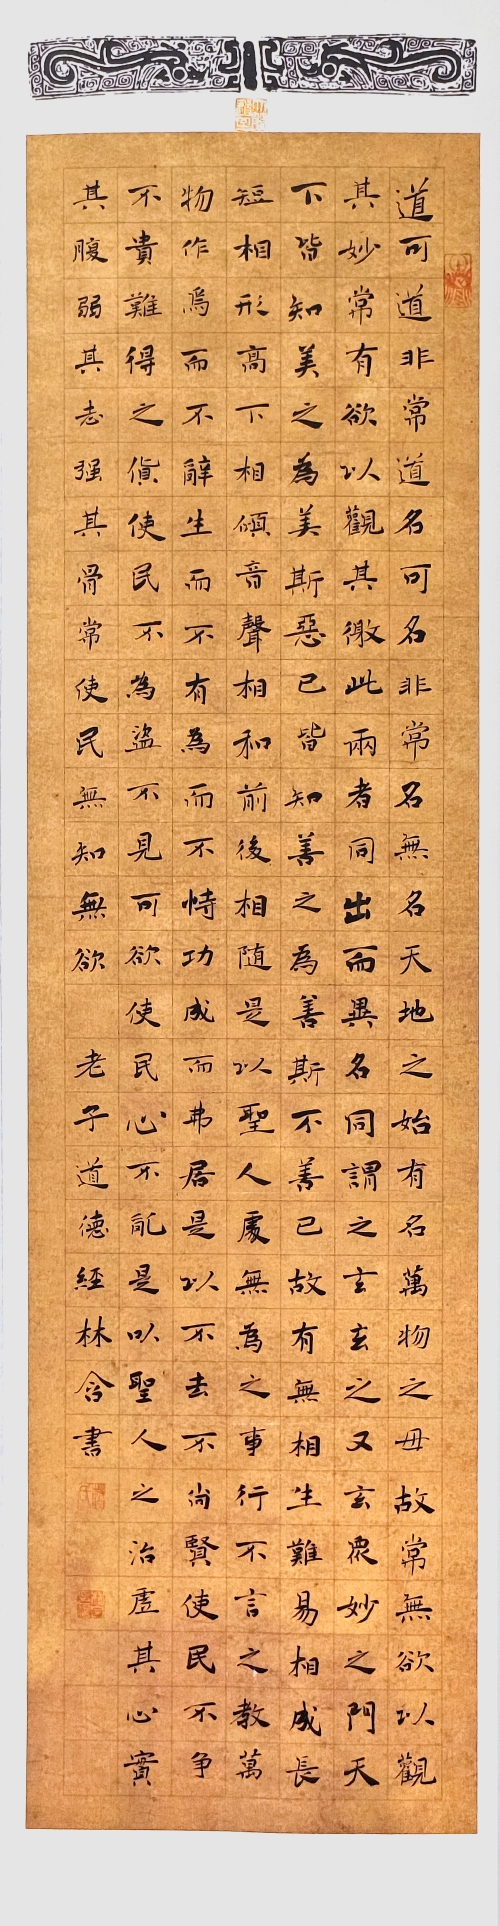 道可道非常道名可名非常名無名天地之始有名萬物之母故常無欲以觀
其妙常有欲以觀其徼此兩者同出而異名同謂之玄玄之又玄眾妙之門天
下皆知美之為美斯惡已皆知善之為善斯不善已故有無相生難易相成長
短相形高下相傾音聲相和前後相随是以聖人處無為之事行不言之教萬
物作焉而不辭生而不有為而不恃功成而弗居是以不去不尚賢使民不争
不貴難得之貨使民不為盜不見可欲使民心不亂是以聖人之治虛其心實
其腹弱其志强其骨常使民無知無欲 老子道德經林含書